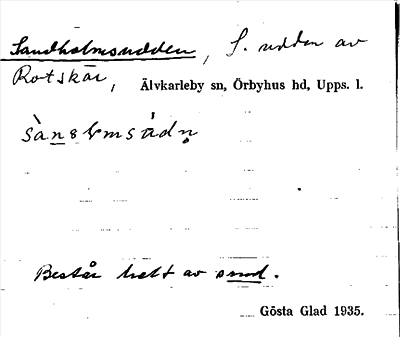 Sandholmsudden, S. udden av
Rotskär, Älvkarleby sn, Örbyhus hd, Upps. l.
Består helt av sand.
Gösta Glad 1935.